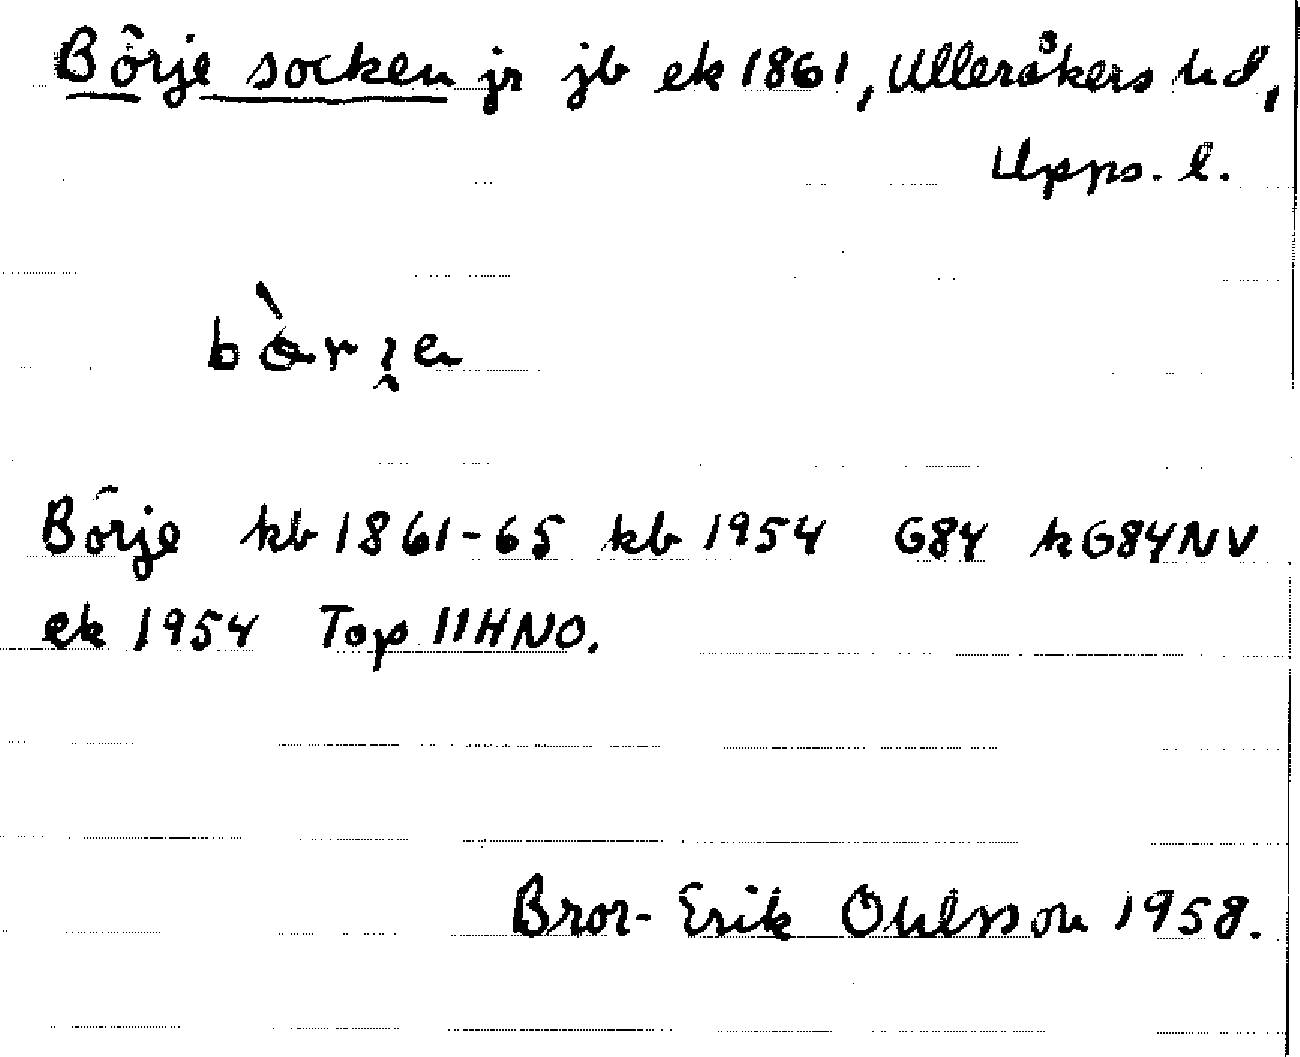 Börje socken jr jb ek 1861, Ulleråkers hd,
Upps. l.
Börje kb 1861-65 kb 1954 G84 kG84NV
ek 1954 Top 11HNO.
Bror-Erik Ohlsson 1958.